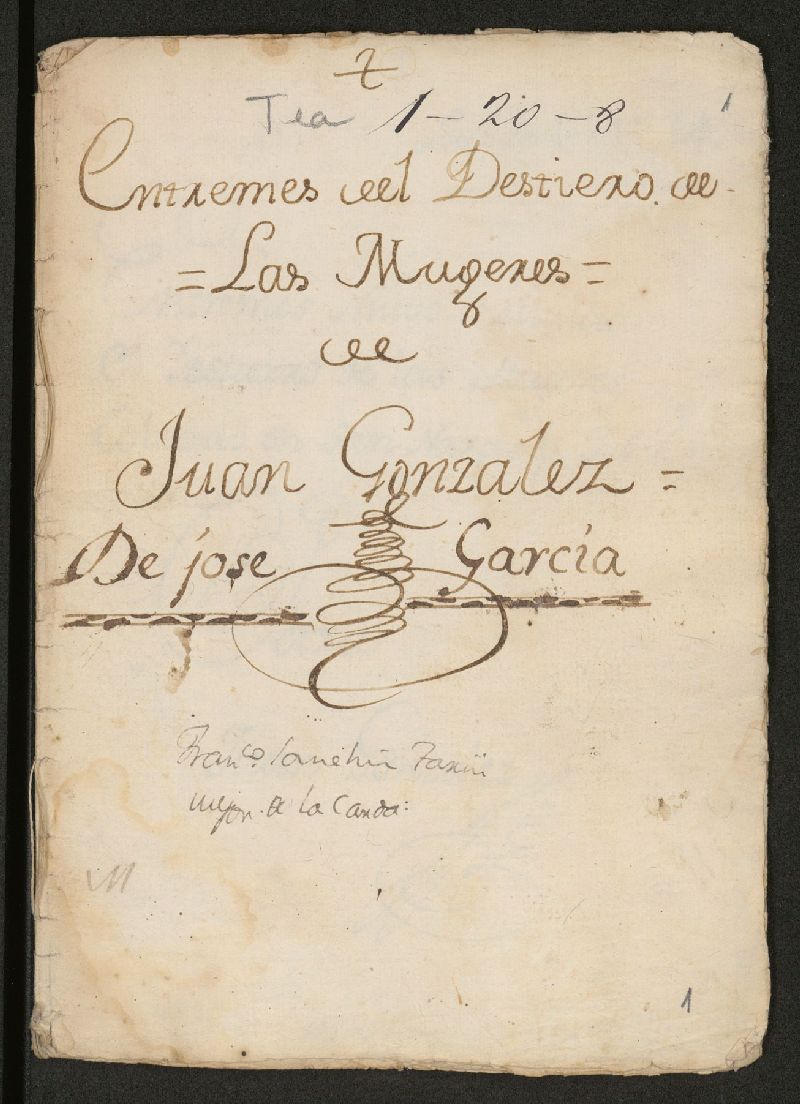 Tea 1-20-8
1
Entremes del Destiero de
=Las Mugeres=
de
Juan Gonzalez=
De jose Garcia
Franco.
de la Canda:
M
1